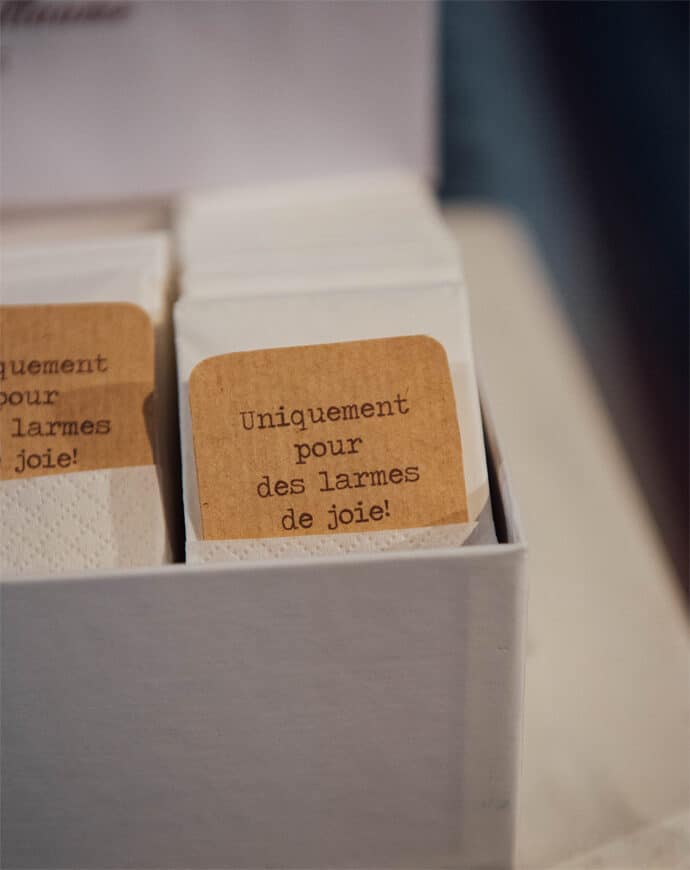 quement
pour
larmes
joie!
Uniquement
pour
des larmes
de joie!